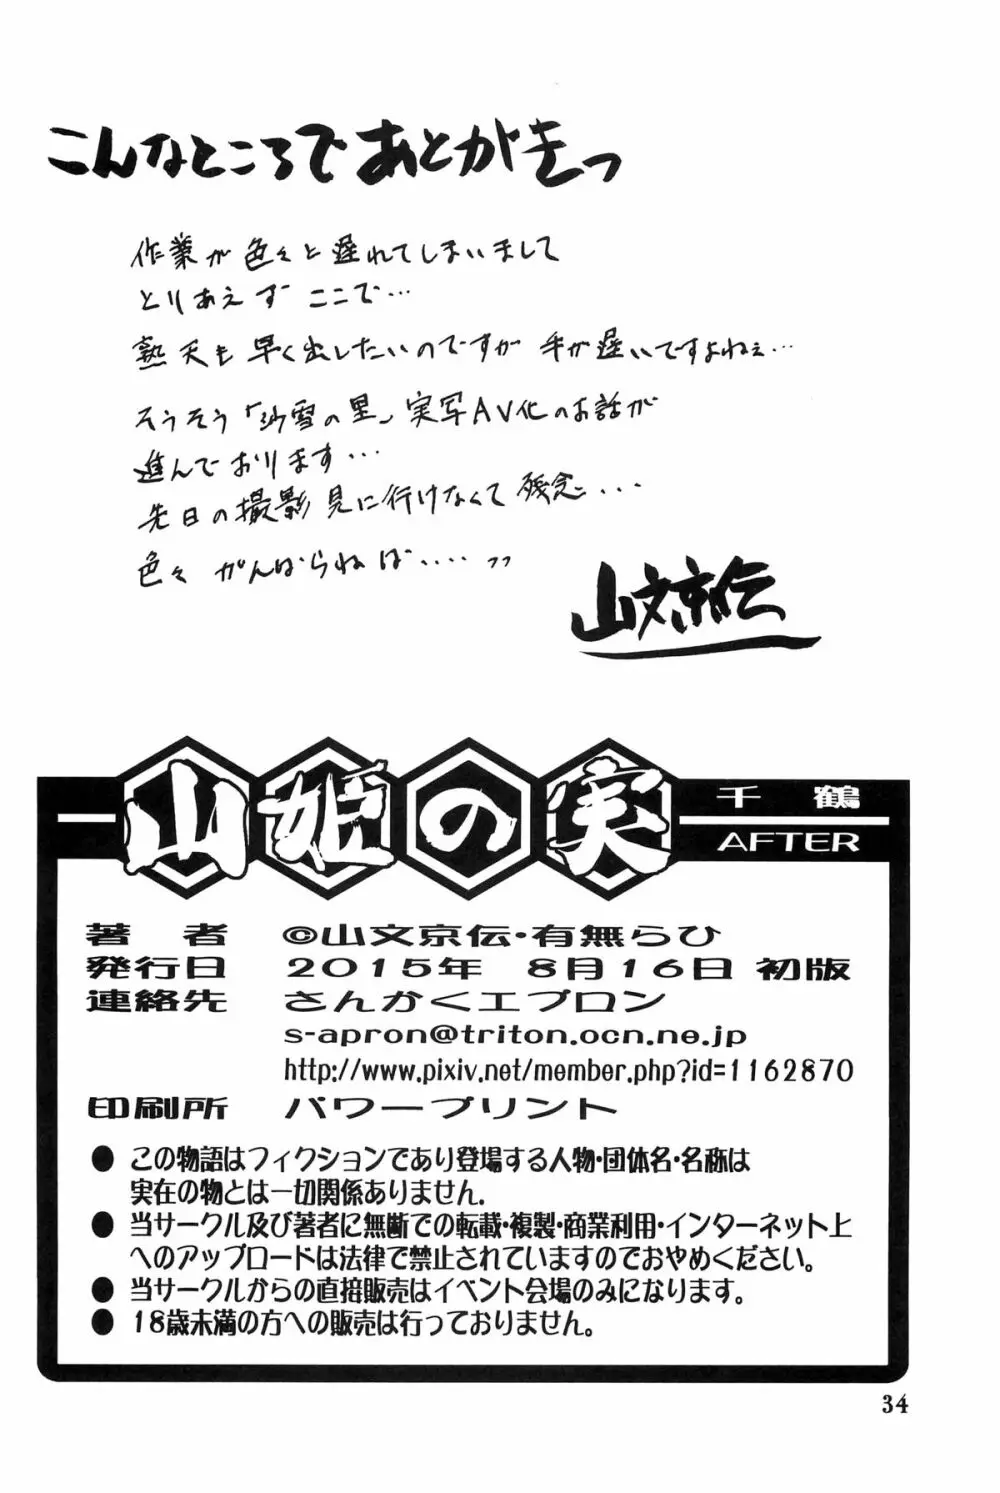 こんなところであとがきっ
作業が色々と遅れてしまいまして
とりあえず ここで…
熟天も 早く出したいのですが 手が遅いですよねぇ…
そうそう「沙雪の里」実写AV化のお話が
進んでおります…
先日の撮影見に行けなくて 残念…
色々 がんばらねば…. っっ
山文京伝
山姫の実 千鶴
AFTER
著者 ©山文京伝・有無らひ
発行日 2015年 8月16日 初版
連絡先 さんかくエプロン
s-apron@triton.ocn.ne.jp
http://www.pixiv.net/member.php?id=1162870
印刷所 パワープリント
● この物語はフィクションであり登場する人物・団体名・名称は
実在の物とは一切関係ありません.
● 当サークル及び著者に無断での転載・複製・商業利用・インターネット上
へのアップロードは法律で禁止されていますのでおやめください。
● 当サークルからの直接販売はイベント会場のみになります。
● 18歳未満の方への販売は行っておりません。
34